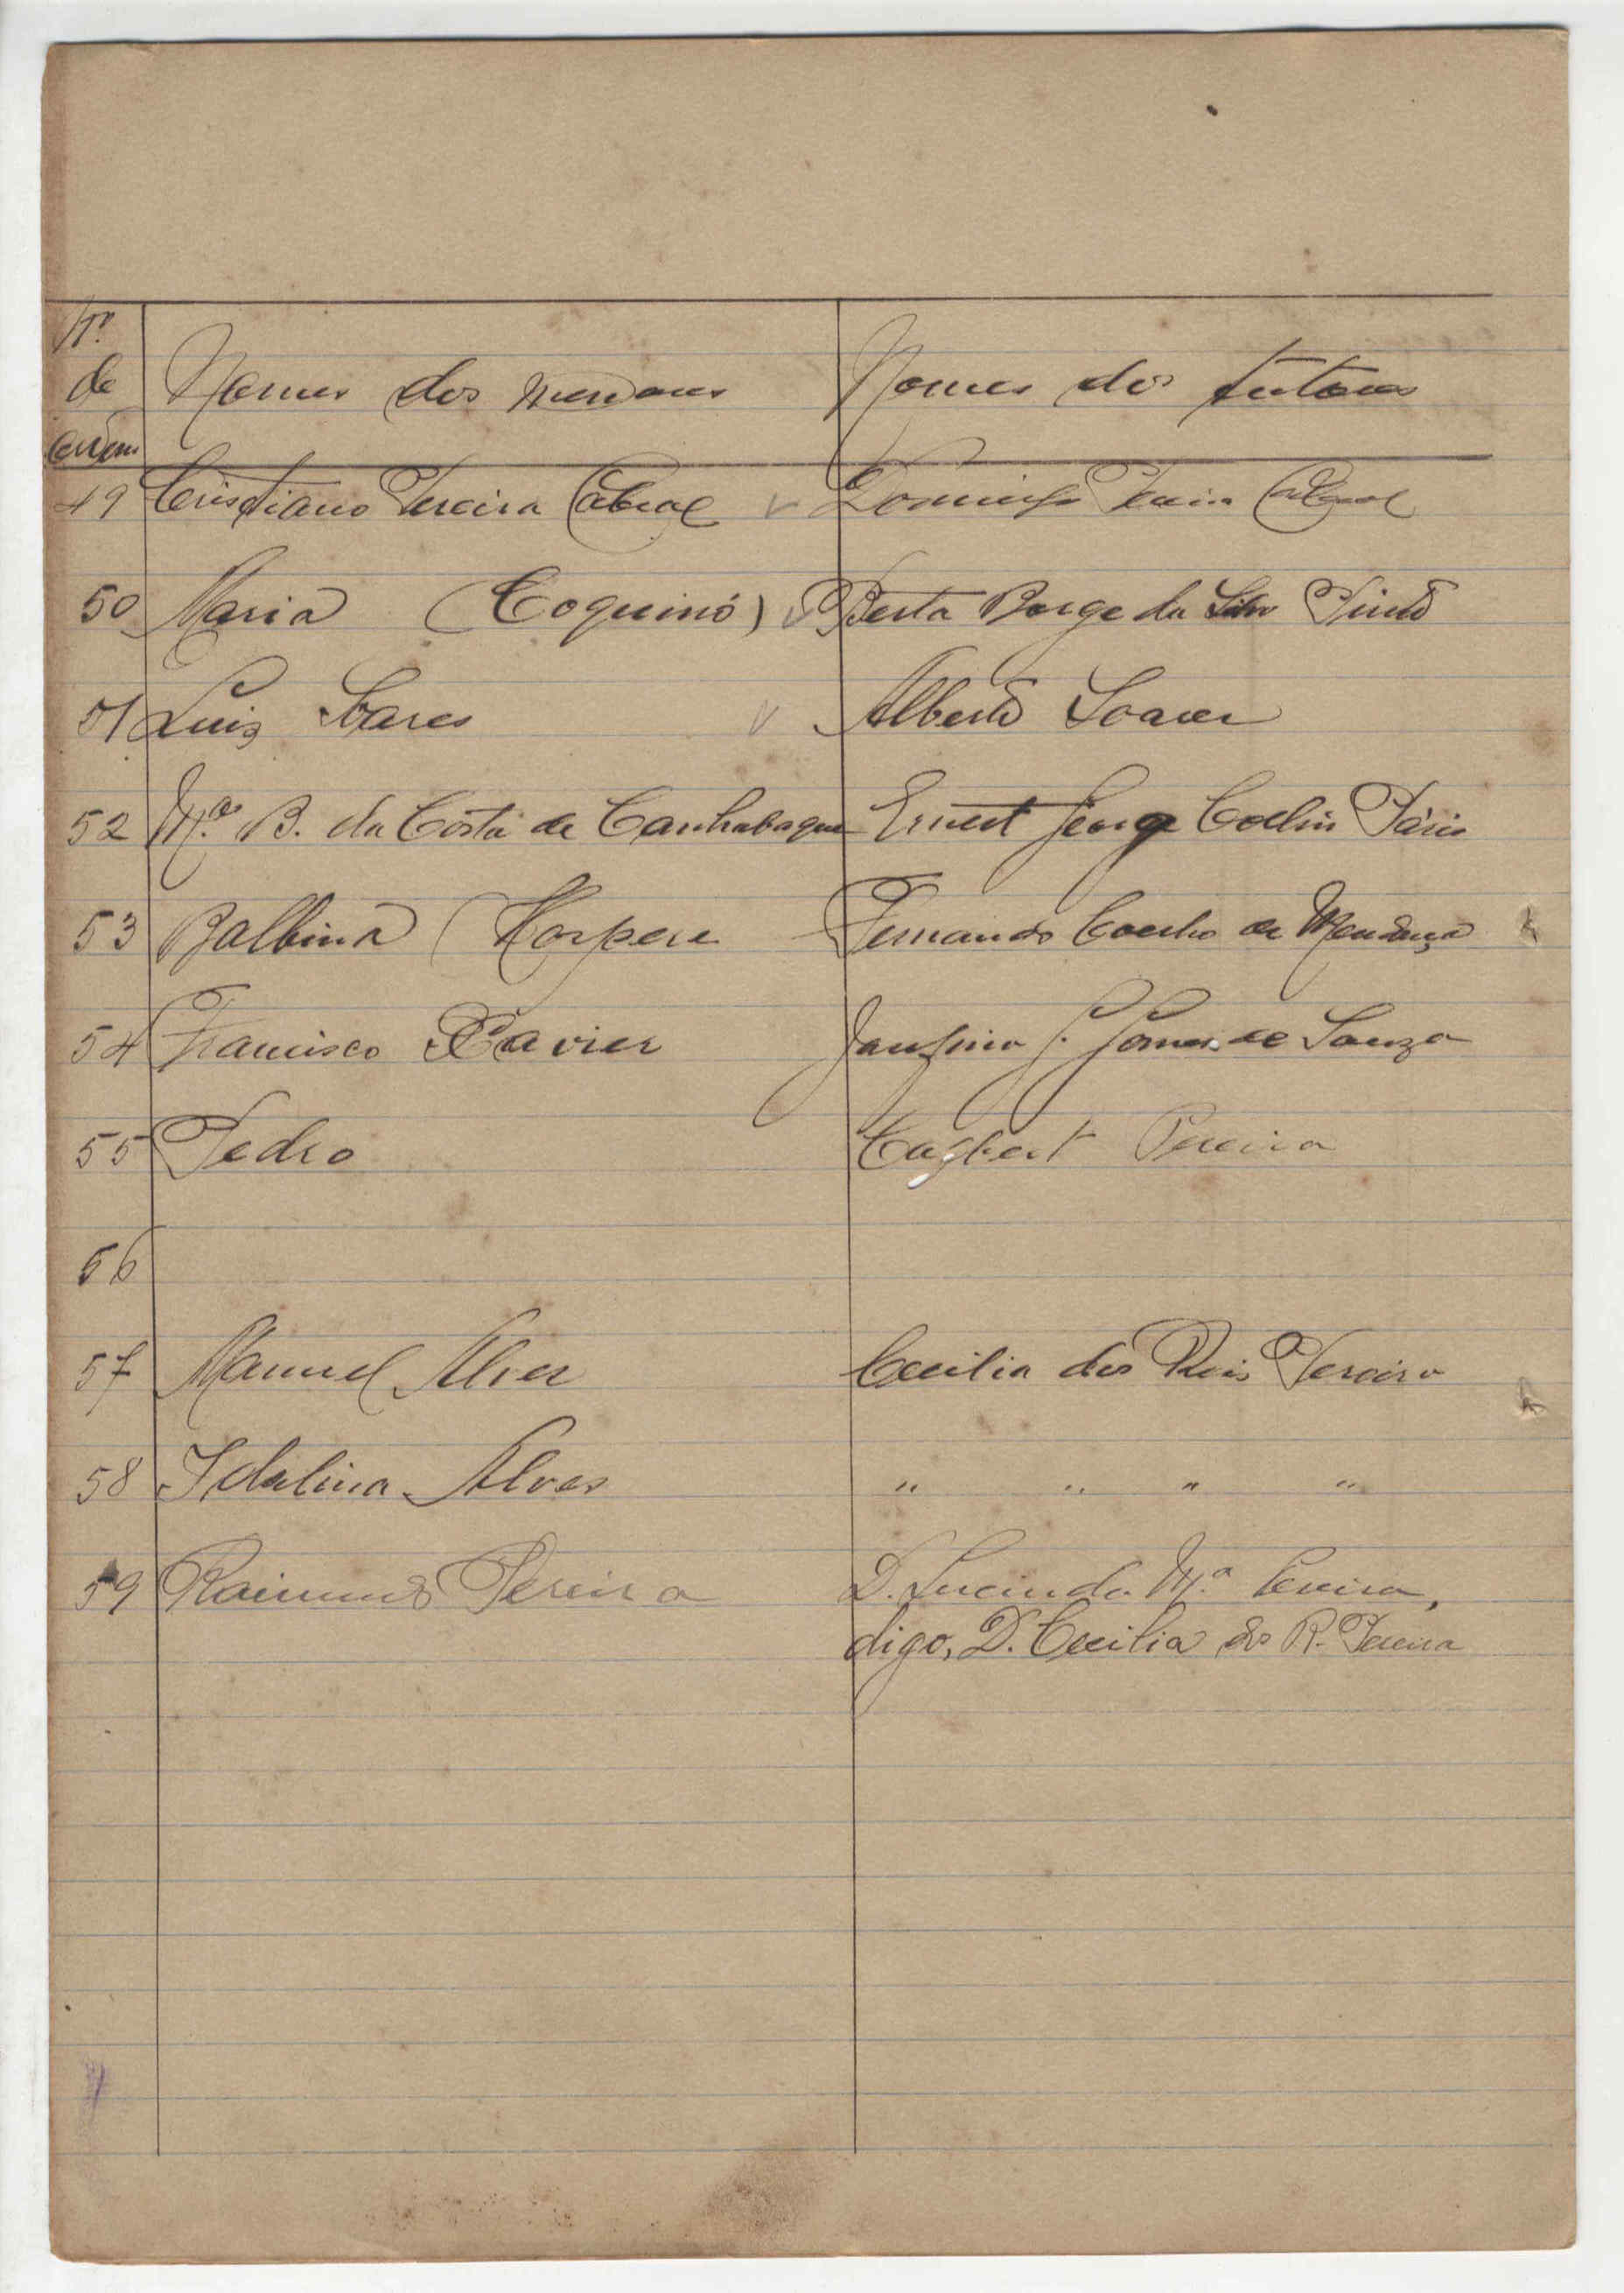 Nº
de
ordem
Nomes dos menores
Nomes dos tutores
49 Cristiano Pereira Cabral v Domingos Pereira Cabral
50 Maria (Coquinó) v Berta Borge da Silva Pinto
51 Luiz Soares v Alberto Soares
52 M.ª B. da Costa de Canhabaque Ernest George Coelho
53 Balbina Fernando Coelho de Mendonça
54 Francisco Xavier J. Gomes de Souza
55 Pedro Pereira
56
57 Manuel Alves Cecilia dos Reis Pereira
58 Idalina Alves " " " "
59 Raimundo Pereira D. Lucinda M.ª Pereira,
digo, D. Cecilia dos R. Pereira